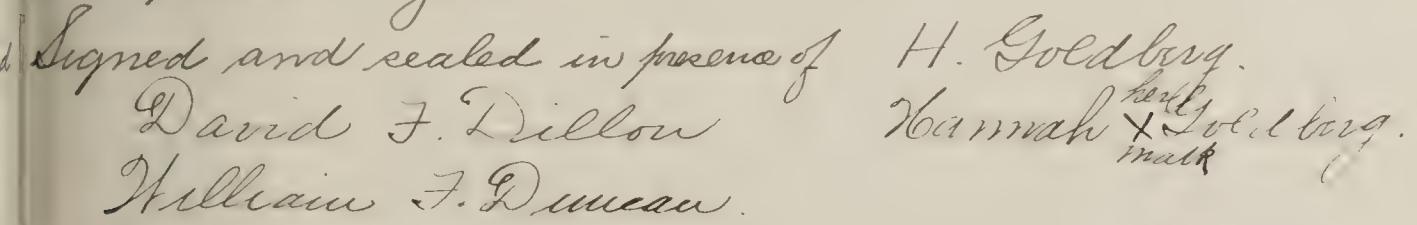 Signed and sealed in presence of H. Goldberg.
David F. Dillon Hannah her X mark Goldberg.
William F. Duncan.